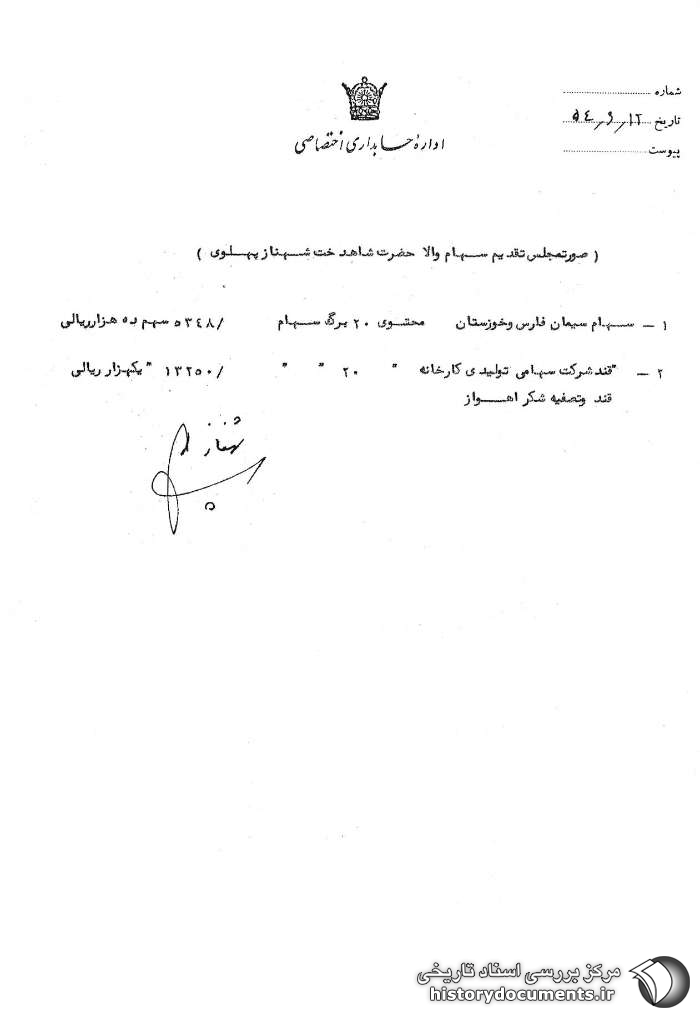 شماره
تاریخ ۵٤٫۹٫۱۲
پیوست
ادارهٔ حسابداری اختصاصی
( صورتمجلس تقدیم سهام والا حضرت شاهدخت شهناز پهلوی )
۱ – سهام سیمان فارس وخوزستان محتوی ۲۰ برگ سهام /۵۳٤۸ سهم ده هزارریالی
۲ – "قند شرکت سهامی تولیدی کارخانه " ۲۰ " " /۱۳۲۵۰ " یکهزار ریالی
قند وتصفیه شکر اهواز
شهناز
مرکز بررسی اسناد تاریخی
historydocuments.ir